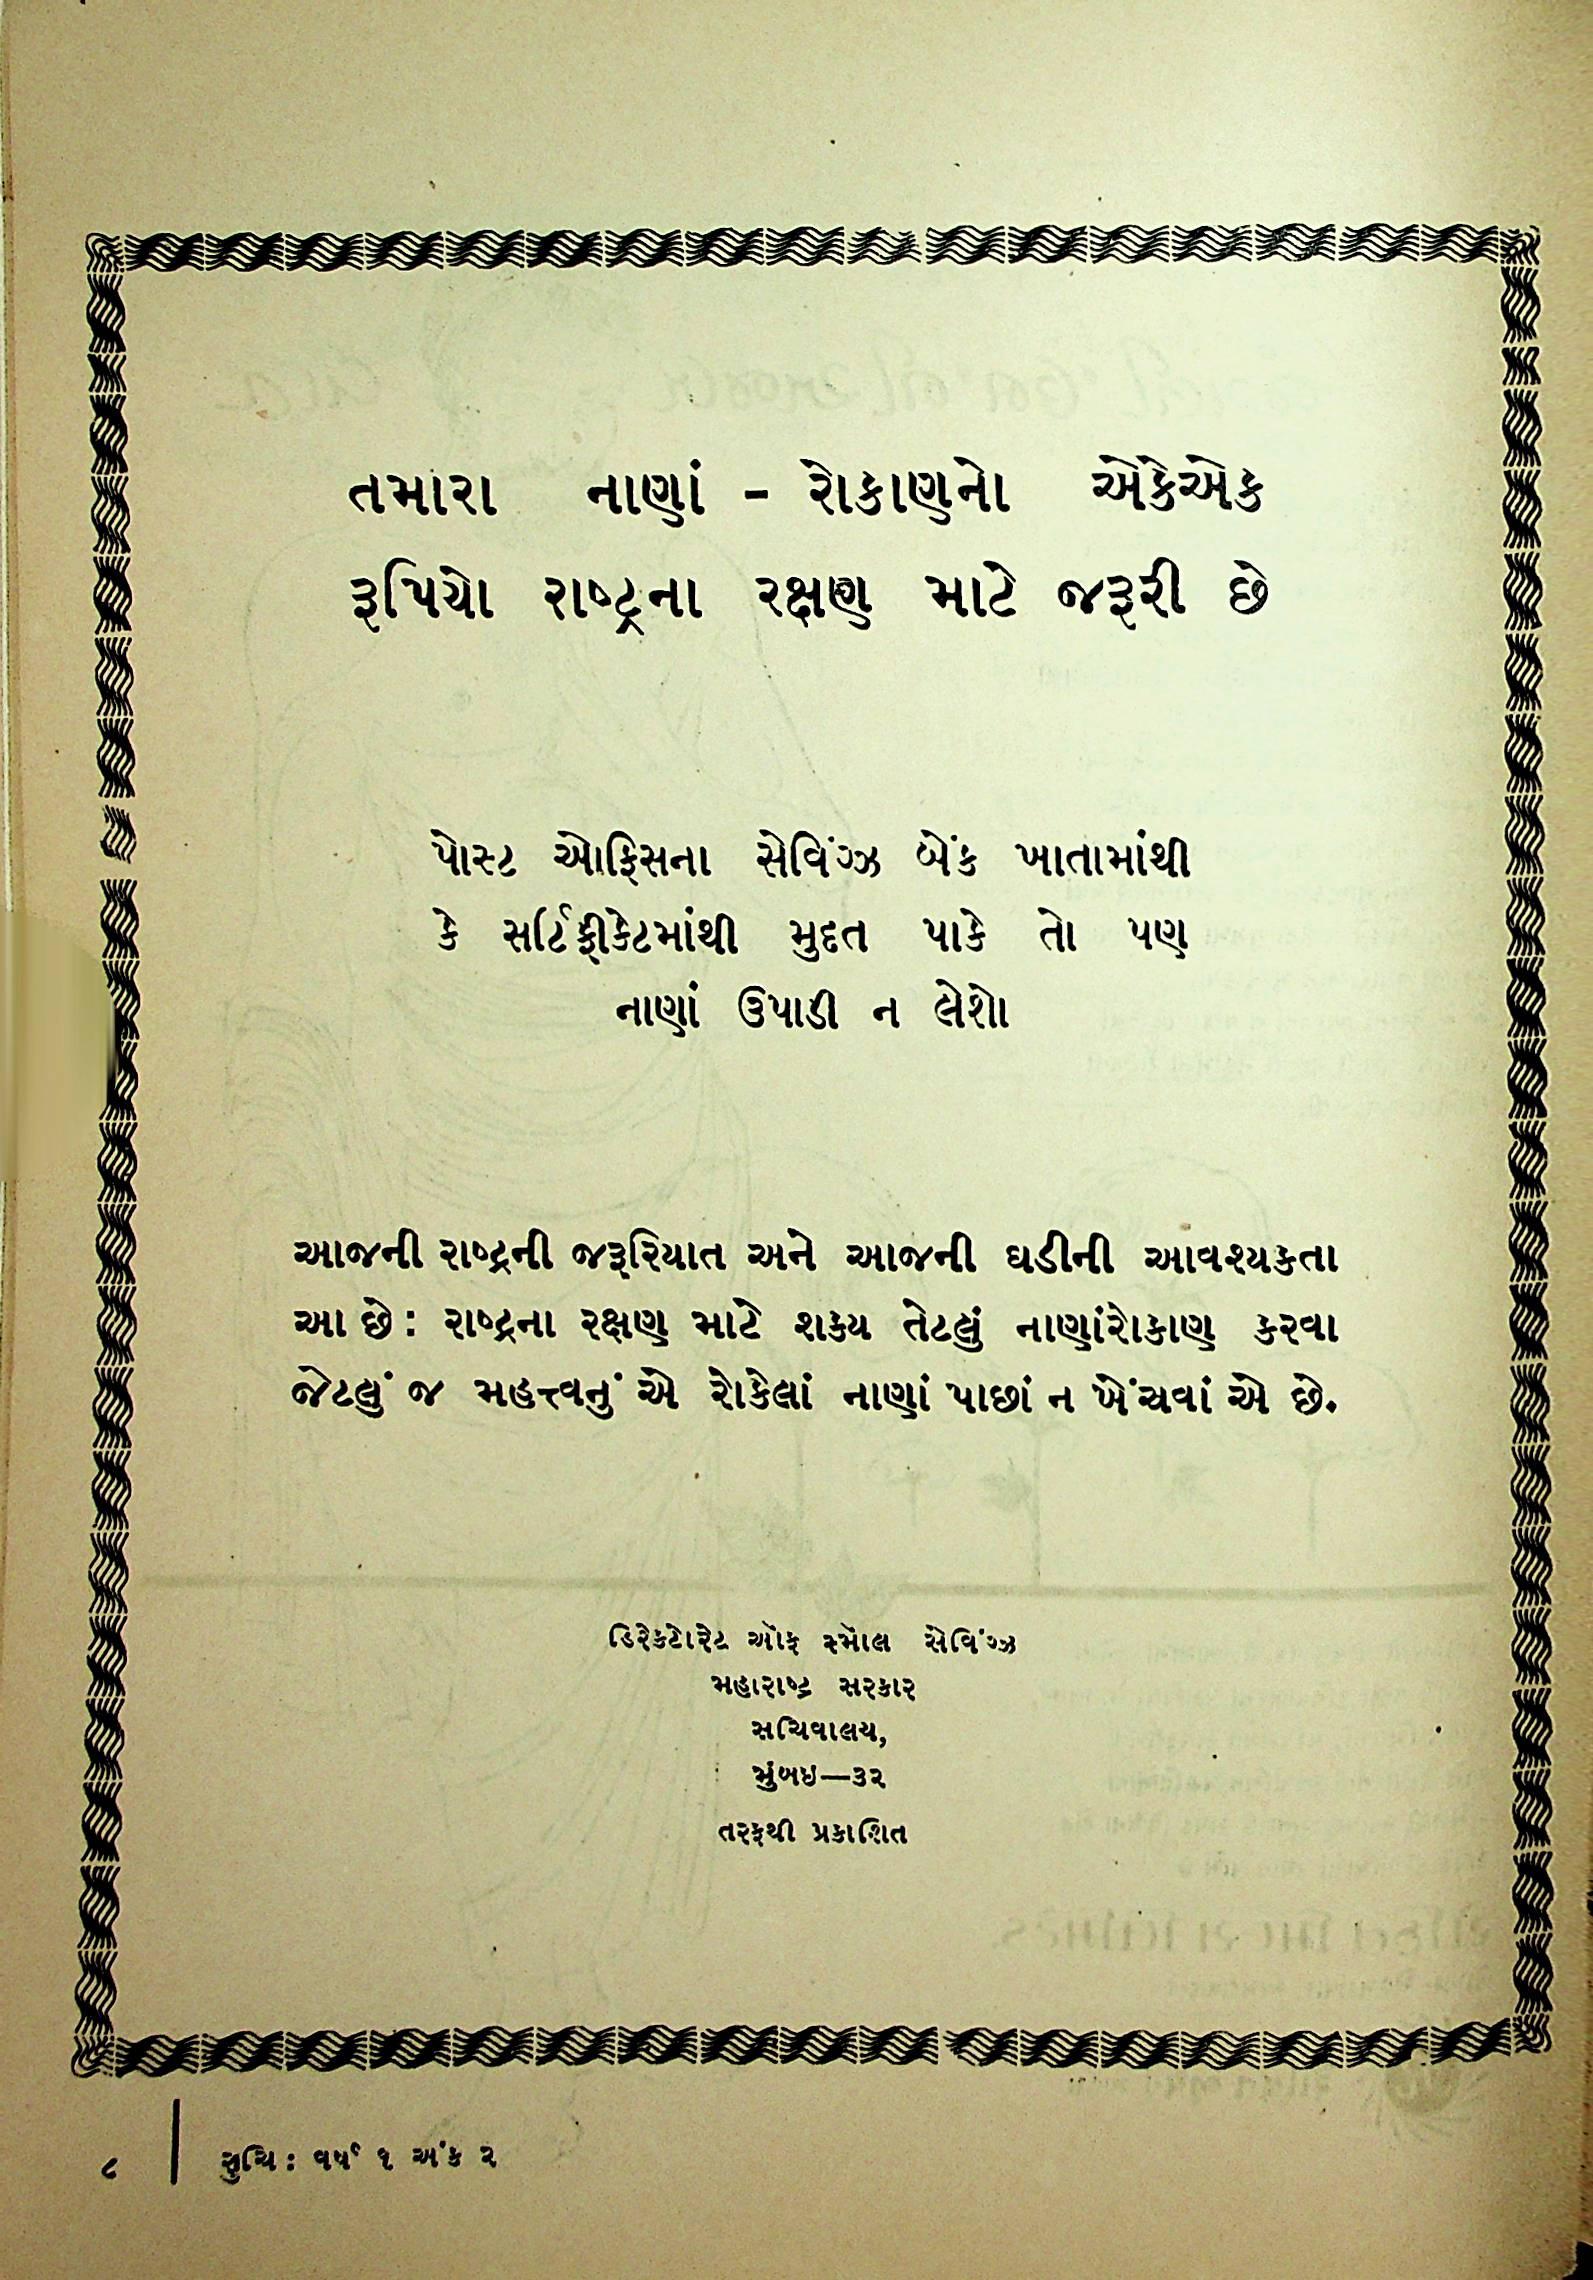 તમારા નાણાં - રોકાણનો એકેએક
રૂપિયો રાષ્ટ્રના રક્ષણ માટે જરૂરી છે
પોસ્ટ ઓફિસના સેવિંગ્ઝ બેંક ખાતામાંથી
કે સર્ટિફીકેટમાંથી મુદત પાકે તો પણ
નાણાં ઉપાડી ન લેશો
આજની રાષ્ટ્રની જરૂરિયાત અને આજની ઘડીની આવશ્યકતા
આ છે : રાષ્ટ્રના રક્ષણ માટે શક્ય તેટલું નાણાંરોકાણ કરવા
જેટલું જ મહત્ત્વનું એ રોકેલાં નાણાં પાછાં ન ખેંચવાં એ છે.
ડિરેક્ટોરેટ ઑફ સ્મૉલ સેવિંગ્ઝ
મહારાષ્ટ્ર સરકાર
સચિવાલય,
મુંબઇ—૩૨
તરફથી પ્રકાશિત
૮ | રુચિ : વર્ષ ૧ અંક ૨